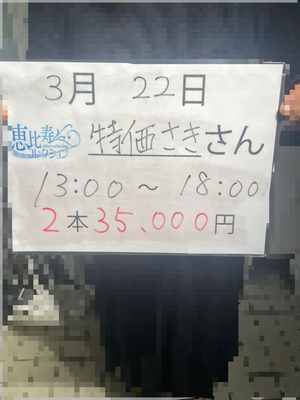 3月 22日
恵比寿
特価さきさん
13:00 ~ 18:00
2本35.000円